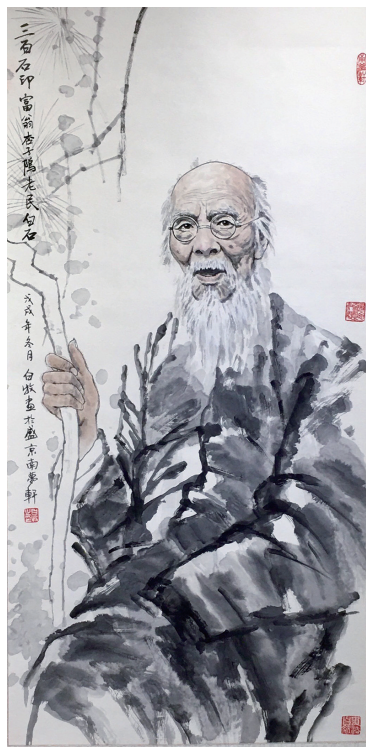 三百石印富翁杏子隖老民白石
戊戌年冬月 白牧畫於盛京南夢軒